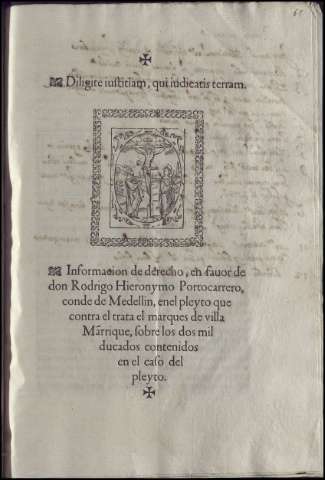 Diligite iustitiam, qui iudicatis terram.
Informacion de derecho, en fauor de
don Rodrigo Hieronymo Portocarrero,
conde de Medellin, enel pleyto que
contra el trata el marques de villa
Mãrrique, sobre los dos mil
ducados contenidos
en el caso del
pleyto.